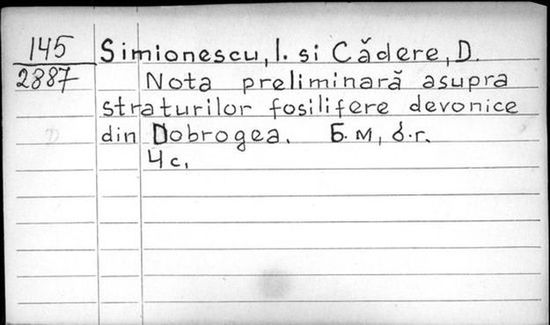 145
2887
Simionescu, I. si Cădere, D.
Nota preliminară asupra
straturilor fosilifere devonice
din Dobrogea. Б.м, б.г.
4 с.